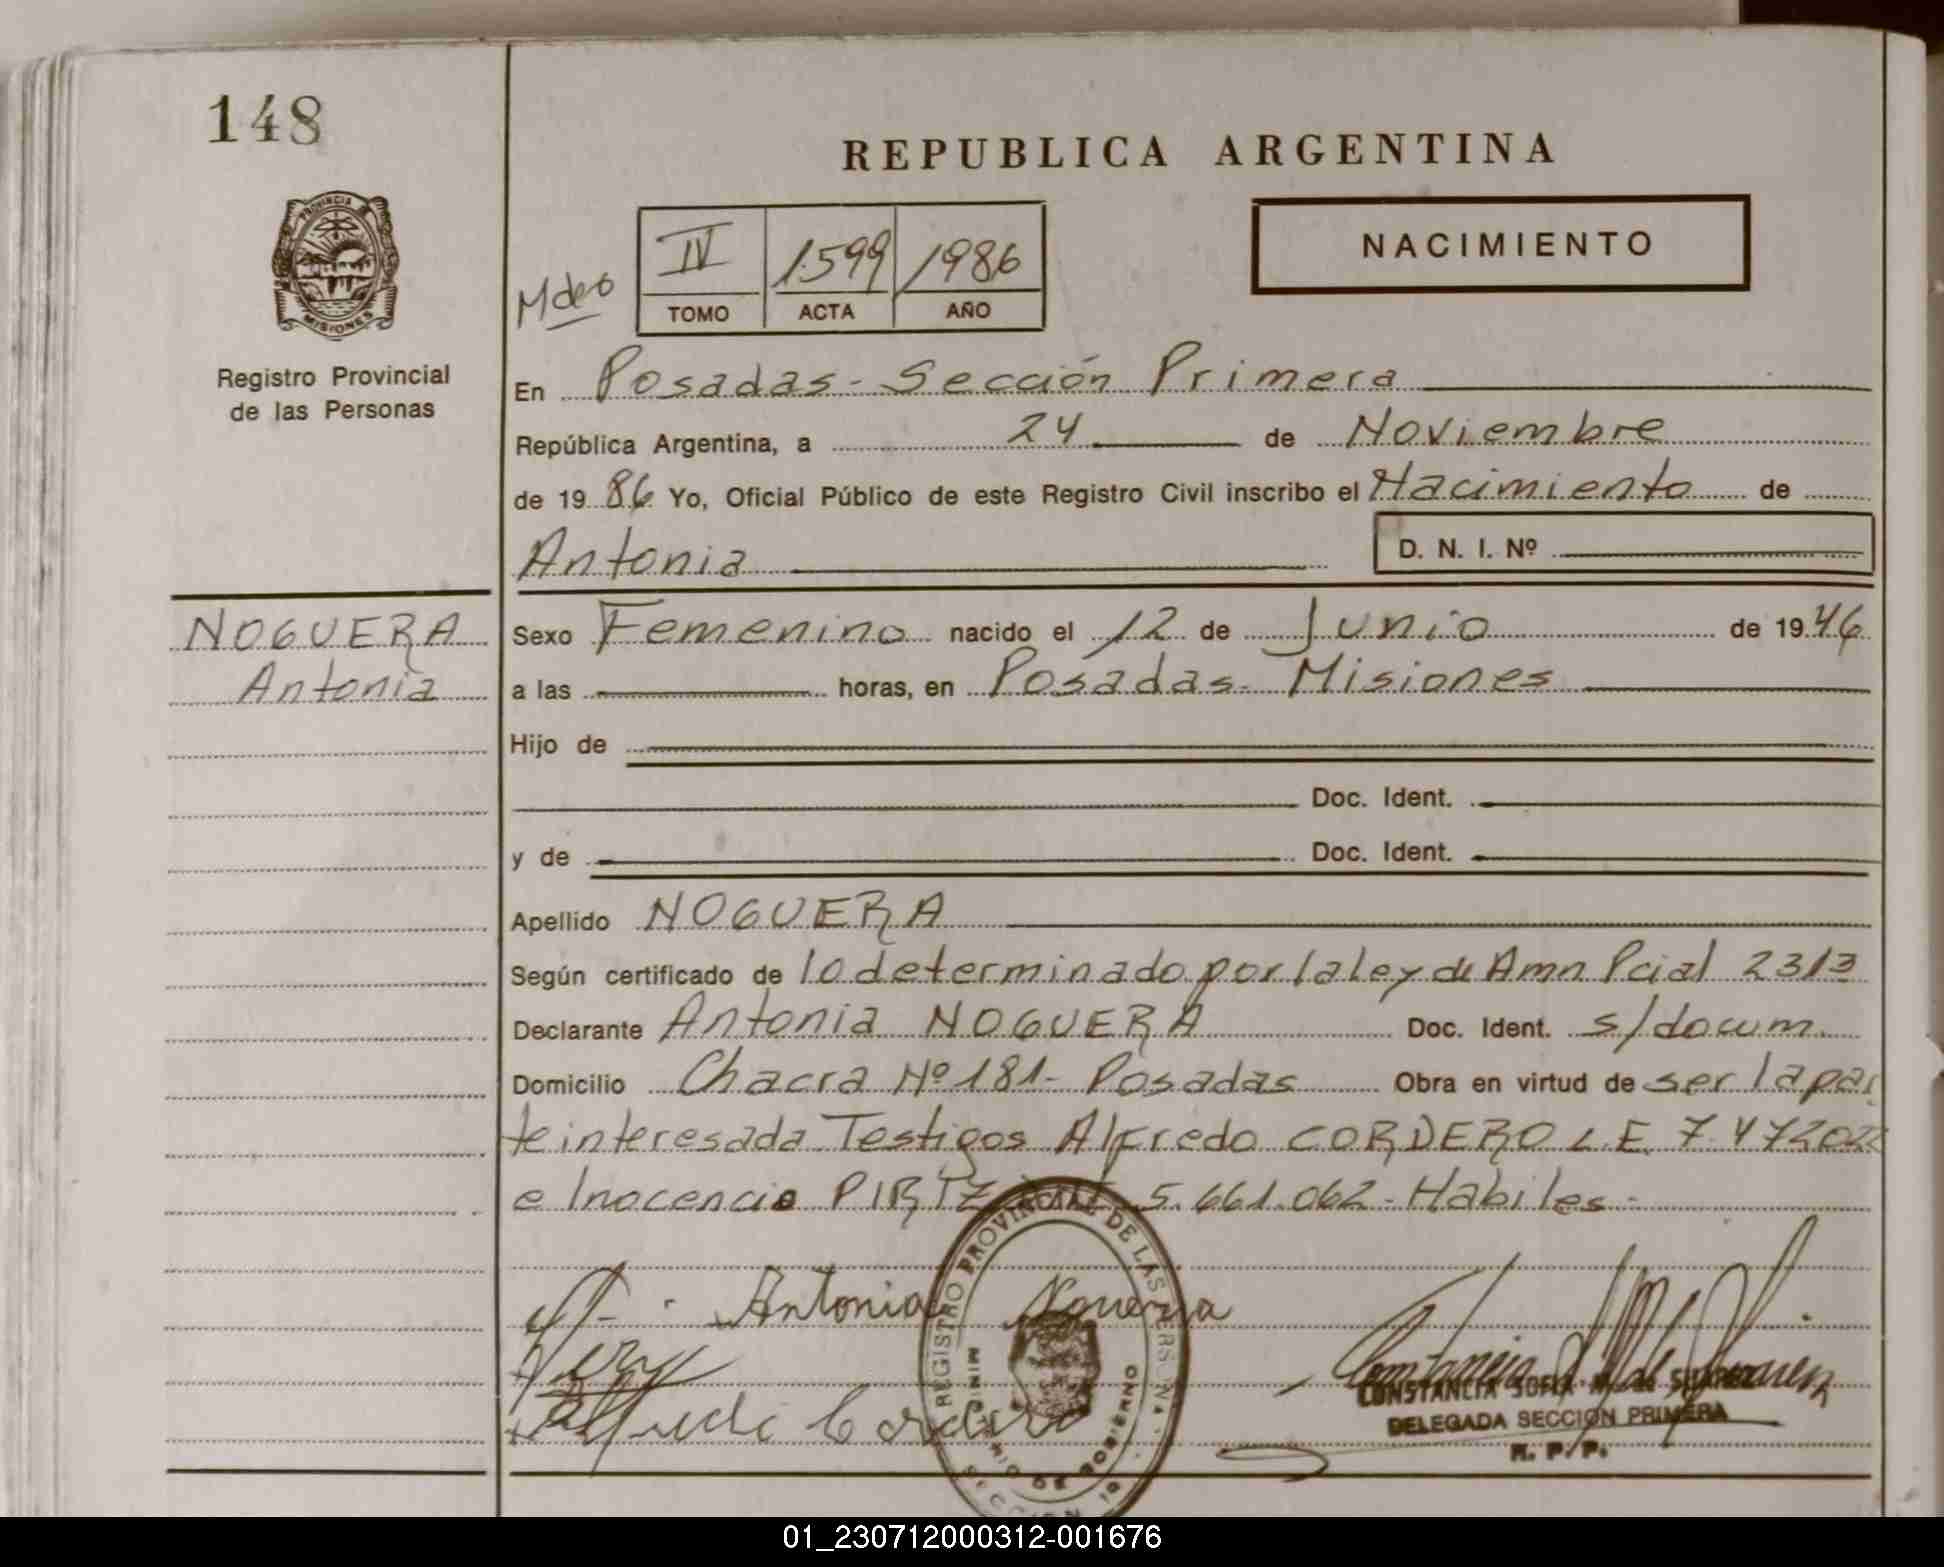 148
REPUBLICA ARGENTINA
PROVINCIA DE
MISIONES
NACIMIENTO
IV 1599 1986
TOMO ACTA AÑO
Registro Provincial
de las Personas
En Posadas - Sección Primera
República Argentina, a 24 de Noviembre
de 1986 Yo, Oficial Público de este Registro Civil inscribo el Nacimiento de
Antonia D. N. I. Nº
NOGUERA
Antonia
Sexo Femenino nacido el 12 de Junio de 1946
a las horas, en Posadas - Misiones
Hijo de
Doc. Ident.
y de Doc. Ident.
Apellido NOGUERA
Según certificado de lo determinado por la ley de Amn Pcial 2313
Declarante Antonia NOGUERA Doc. Ident. s/docum.
Domicilio Chacra Nº 181 - Posadas Obra en virtud de ser la par
te interesada Testigos Alfredo CORDERO L.E. 7.472022
e Inocencio 5.661.062 - Habiles -
Antonia Noguera
Alfredo Cordero
REGISTRO PROVINCIAL DE LAS PERSONAS
MINISTERIO DE GOBIERNO
SECCION 1a
CONSTANCIA SOFIA M. de SUAREZ
DELEGADA SECCION PRIMERA
R. P. P.
01_230712000312-001676